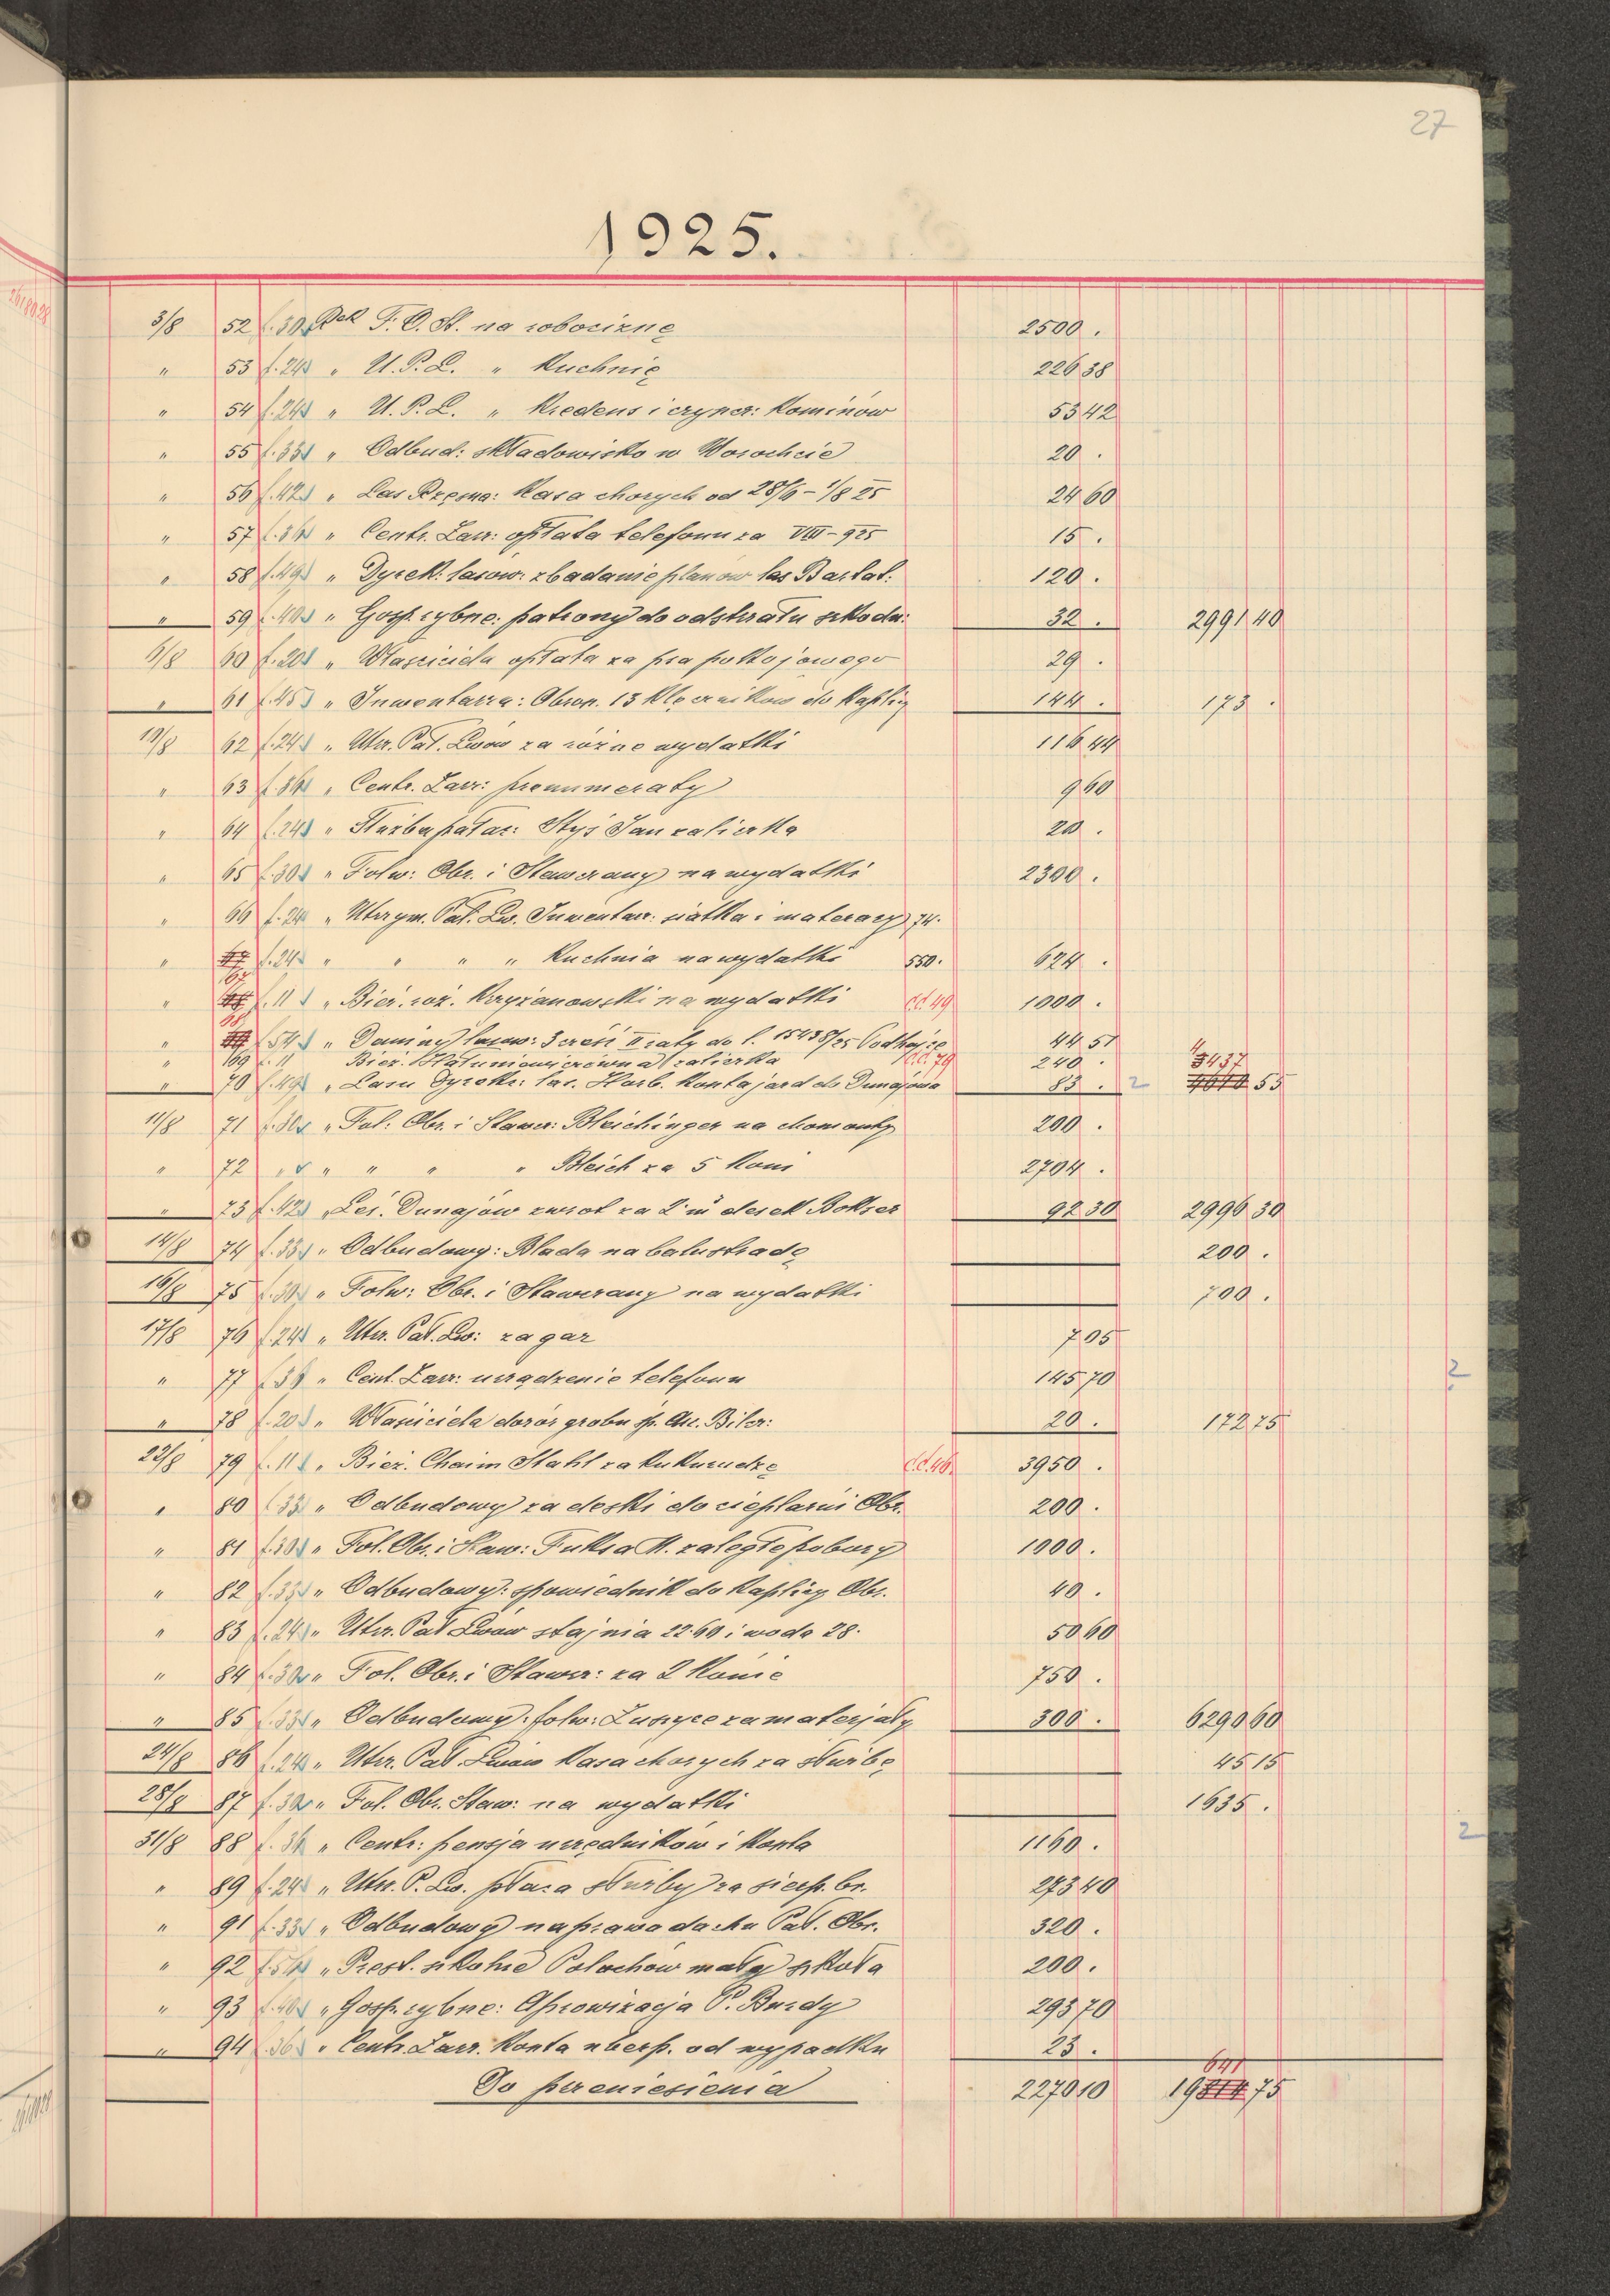 27
1925.
3/8 52 f. 30 Rek F. O. St. na robociznę 2500 .
" 53 f. 24 " U. P. L. " Kuchnię 226 38
" 54 f. 24 " U. P. L. " Kredens i czyncz: Kominów 53 42
" 55 f. 33 " Odbud: składowisko w Worochcie 20 .
" 56 f. 42 " Las Kasa chorych od 28/6 - 1/8 25 24 60
" 57 f. 36 " Centr. Zarz: opłata telefonu za VIII - 925 15 .
" 58 f. 49 " Dyrek: lasów: zbadanie planów las Bartat: 120 .
" 59 f. 40 " Gosp. rybne: patrony do odstrzału szkodn: 32 . 2991 40
6/8 60 f. 20 " Właściciela opłata za psa pokojowego 29 .
" 61 f. 45 " Inwentarza: Obroż. 13 klęczników do Kaplicy 144 . 173 .
10/8 62 f. 24 " Utrz. Pał. Lwów za różne wydatki 116 44
" 63 f. 36 " Centr. Zarz: prenumeraty 9 60
" 64 f. 24 " Służba pałac: Styś Jan zaliczka 20 .
" 65 f. 30 " Folw: Obr. i Stawczany na wydatki 2300 .
" 66 f. 24 " Utrzym. Pał. Lw. Inwentarz: siatka i materacy 74.
" 67 f. 24 " " " " Kuchnia na wydatki 550. 624 .
" 68 f. 11 " Bież. roż. Krzyżanowski na wydatki d.d. 49 1000 .
" 69 f. 54 " Daniny lasów: 3 część II raty do l. 15438/25 Podhajce 44 51
" 69 f. 11 Bież. zaliczka d.d. 79 240 . 4437
" 70 f. 49 " Lasu Dyrekc: las. Harb. Konta jazd do Dunajowa 83 . 2 4610 55
11/8 71 f. 30 " Fol: Obr. i Stawcz: Bleichinger na chomonty 200 .
" 72 " " " " " Bleich za 5 Koni 2704 .
" 73 f. 42 " Leś. Dunajów zwrot za 2 m³ desek Bokser 92 30 2996 30
14/8 74 f. 33 " Odbudowy: Blada na balustradę 200 .
16/8 75 f. 30 " Folw: Obr. i Stawczany na wydatki 700 .
17/8 76 f. 24 " Utrz. Pał. Lw: za gaz 7 05
" 77 f. 36 " Cent. Zarz: urządzenie telefonu 145 70 2
" 78 f. 20 " Właściciela dozór grobu śp. An. Bilcz: 20 . 172 75
22/8 79 f. 11 " Bież. Chaim Stahl za kukurudzę d.d. 46 3950 .
" 80 f. 33 " Odbudowy za deski do cieplarni Obr. 200 .
" 81 f. 30 " Fol. Obr. i Staw: Fuksa M. zaległe pobory 1000 .
" 82 f. 33 " Odbudowy: spowiednik do Kaplicy Obr. 40 .
" 83 f. 24 " Utrz. Pał Lwów stajnia 22.60 i woda 28. 50 60
" 84 f. 30 " Fol. Obr. i Stawcz: za 2 Konie 750 .
" 85 f. 33 " Odbudowy: folw: Luszyce za materjały 300 . 6290 60
24/8 86 f. 24 " Utrz. Pał. Lwów Kasa chorych za służbę 45 15
28/8 87 f. 30 " Fol. Obr. Staw: na wydatki 1635 .
31/8 88 f. 36 " Centr: pensja urzędników i Konta 1160 . 2
" 89 f. 24 " Utrz. P. Lw. płaca służby za sierp. br. 273 40
" 91 f. 33 " Odbudowy naprawa dachu Pał. Obr. 320 .
" 92 f. 54 " Prest. szkolne Połochów mały szkoła 200 .
" 93 f. 40 " Gosp. rybne: Aprowizacja P. Burdy 293 70
" 94 f. 36 " Centr. Zarz. Konta ubezp. od wypadku 23 .
Do przeniesienia 2270 10 19641 75